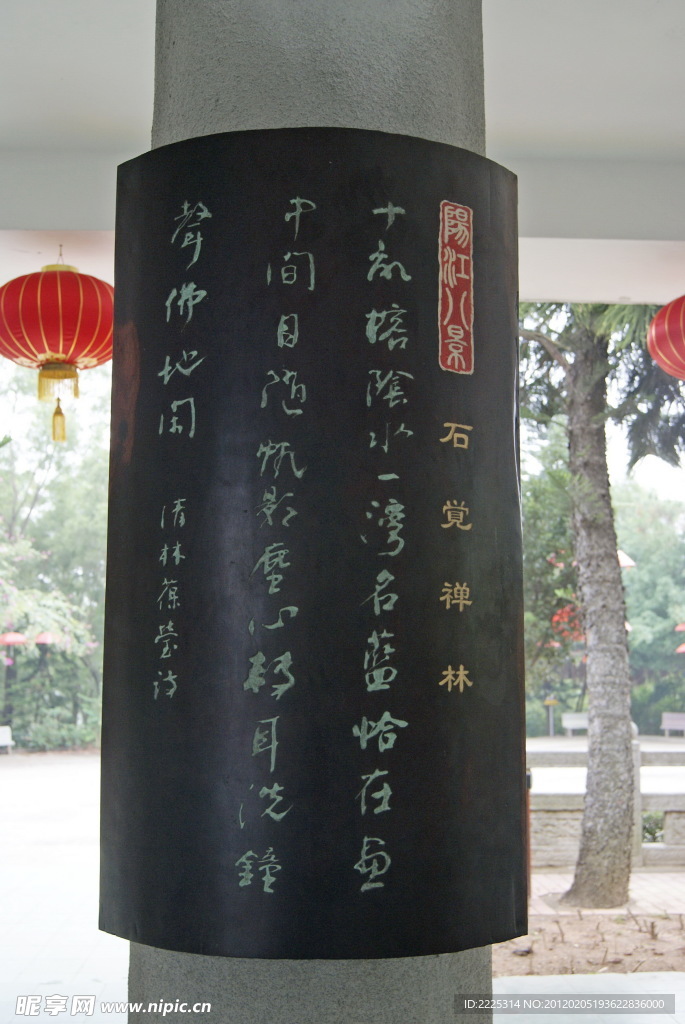 陽江八景
石覚禅林
十畝榕陰水一灣名藍恰在畫
中間目隨帆影塵心轉耳洗鐘
聲佛地閑
清林葆瑩詩
昵享网 www.nipic.cn
ID:2225314 NO:20120205193622836000